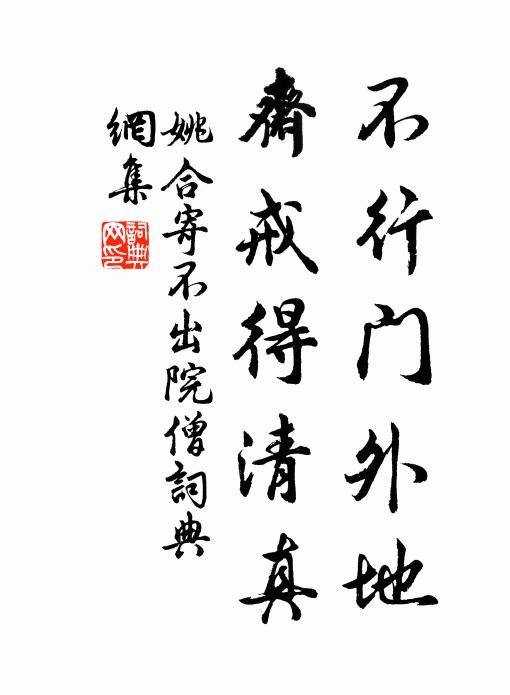 不行门外地
齋戒得清真
姚合寄不出院僧詞典
網集
詞典網印